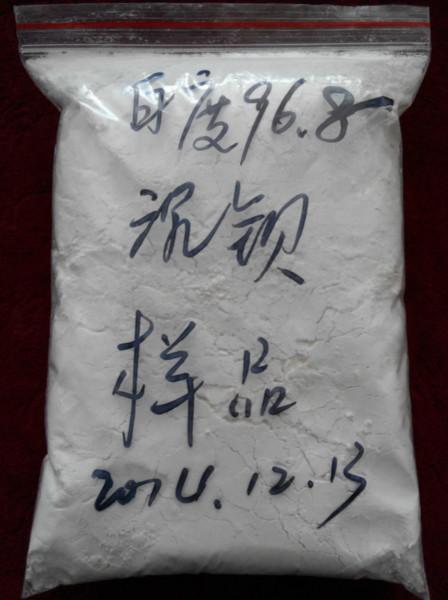 白度96.8
沉钡
样品
2014.12.13